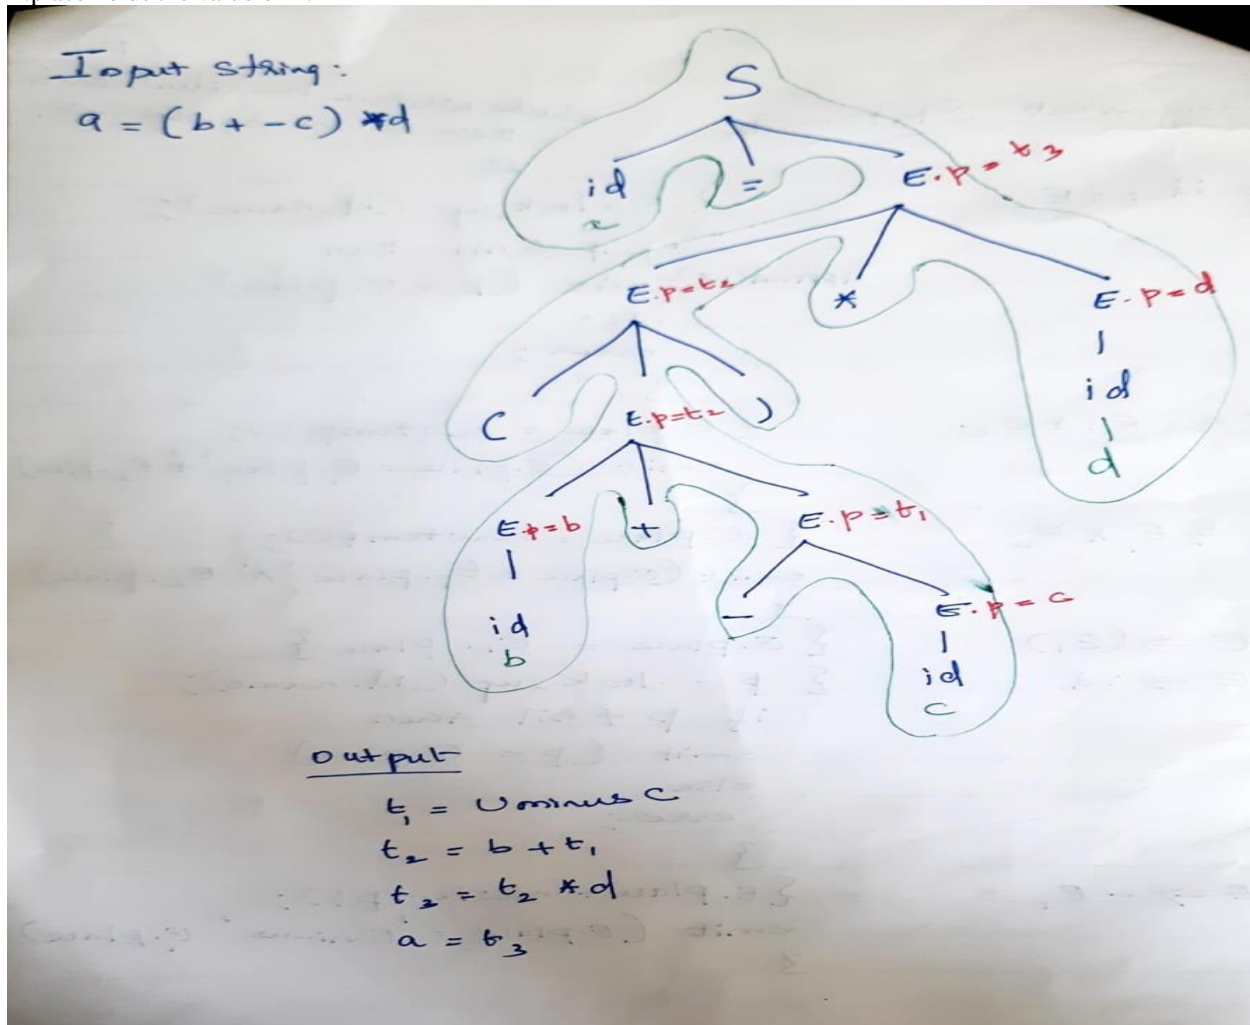 Input string:
a = (b + -c) *d
S
id = E.p = t3
x
E.p=t2 * E.p=d
id
( E.p=t2 ) d
E.p=b + E.p=t1
id - E.p = c
b id
c
output
t1 = Uminus c
t2 = b + t1
t3 = t2 * d
a = t3